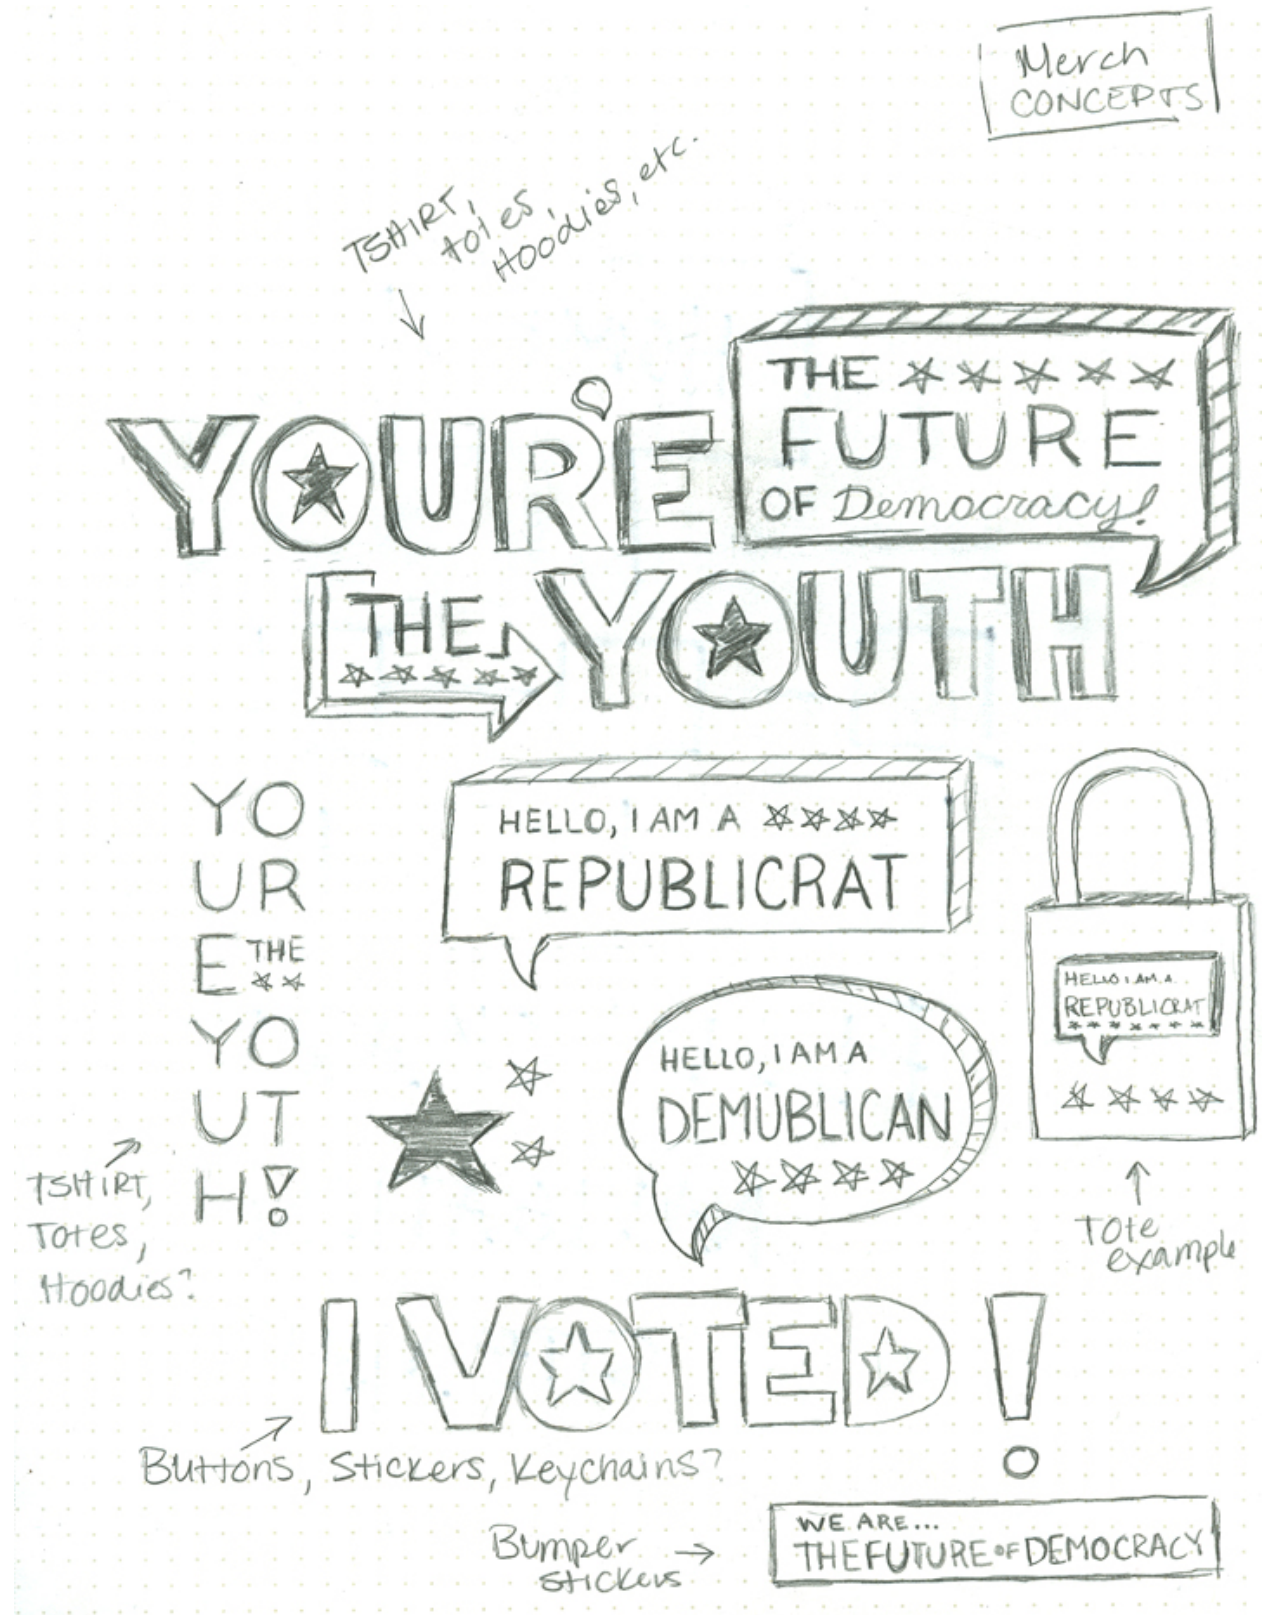 Merch
CONCEPTS
TSHIRT,
totes,
HOODies, etc.
YOU'RE
THE
FUTURE
OF Democracy!
THE
YOUTH
YO
UR
E THE
YO
UT
H!
HELLO, I AM A
REPUBLICRAT
HELLO I AM A
REPUBLICRAT
HELLO, I AM A
DEMUBLICAN
TSHIRT,
Totes,
Hoodies?
TOte
example
I VOTED!
Buttons, Stickers, Keychains?
Bumper
stickers
WE ARE...
THE FUTURE OF DEMOCRACY